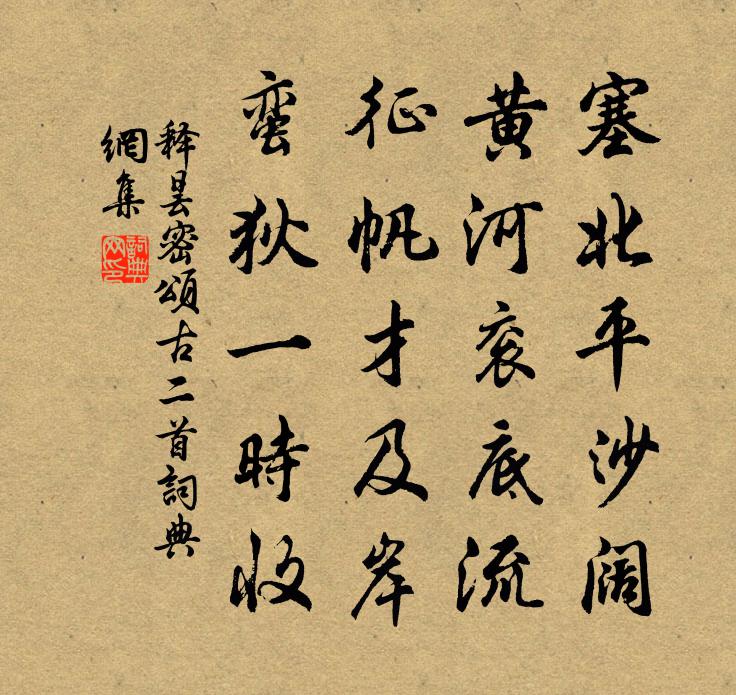 塞北平沙阔
黄河衮底流
征帆才及岸
蛮狄一時收
释昙密頌古二首詞典
網集
詞典
网印